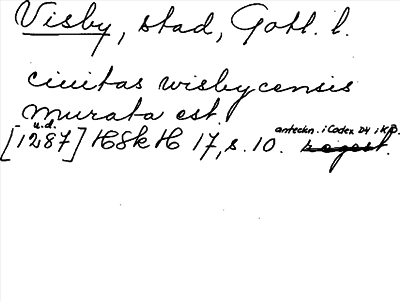 Visby, stad, Gotl. l.
civitas wisbycensis
murata est.
u.d. anteckn. i Codex D4 i KB.
[1287] HSkH 17, s. 10.